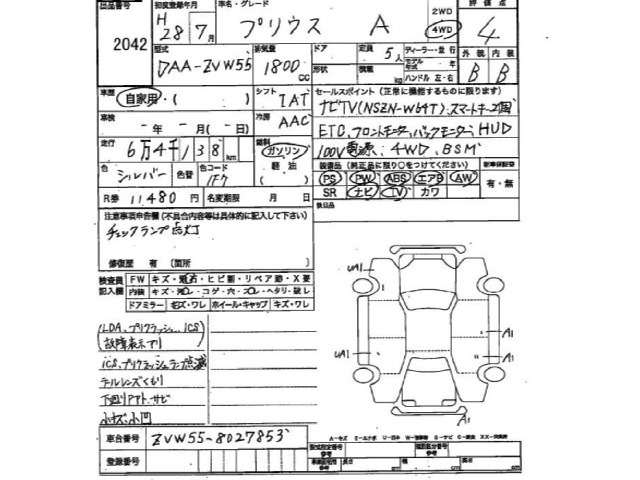 出品番号 2042
初度登録年月 H28年7月
車名・グレード プリウス A
2WD
4WD
評価点 4
型式 DAA-ZVW55
排気量 1800 CC
ドア 形状
定員 5人
積載 kg
ディーラー・並行
モデル年式
ハンドル 左・右
外装 B
内装 B
車歴 自家用・( )
シフト IAT
セールスポイント(正常に機能するものに限ります)
ナビTV(NSZN-W64T)、スマートキー2個
車検 年 月( 日)
冷房 AAC
ETC、フロントモニター、バックモニター、HUD
100V電源、4WD、BSM
走行 6万4千138km
燃料 ガソリン・軽油・( )
色 シルバー
色替
色コード 1F7
装備品(純正品に限り○をつけてください)
PS PW ABS エアB AW
SR ナビ TV カワ
新車保証書 有・無
R券 11,480円
名変期限 月 日
欠品
注意事項申告欄(不具合内容等は具体的に記入して下さい)
チェックランプ点灯
修復歴 有( 箇所)
検査員記入欄
FW キズ・飛石・ヒビ割・リペア跡・X要
内装 キズ・汚レ・コゲ・穴・スレ・ヘタリ・破レ
ドアミラー キズ・ワレ ホイール・キャップ キズ・ワレ
LDA、プリクラッシュ、ICS
故障表示アリ
ICS、プリクラッシュランプ点滅
テールレンズくもり
下廻りアト、サビ
小キズ、小凹
UA1
UA1
A1
A1
A1
車台番号 ZVW55-8027853
登録番号
型式指定番号
類別区分番号
長さ cm 幅 cm 高さ cm